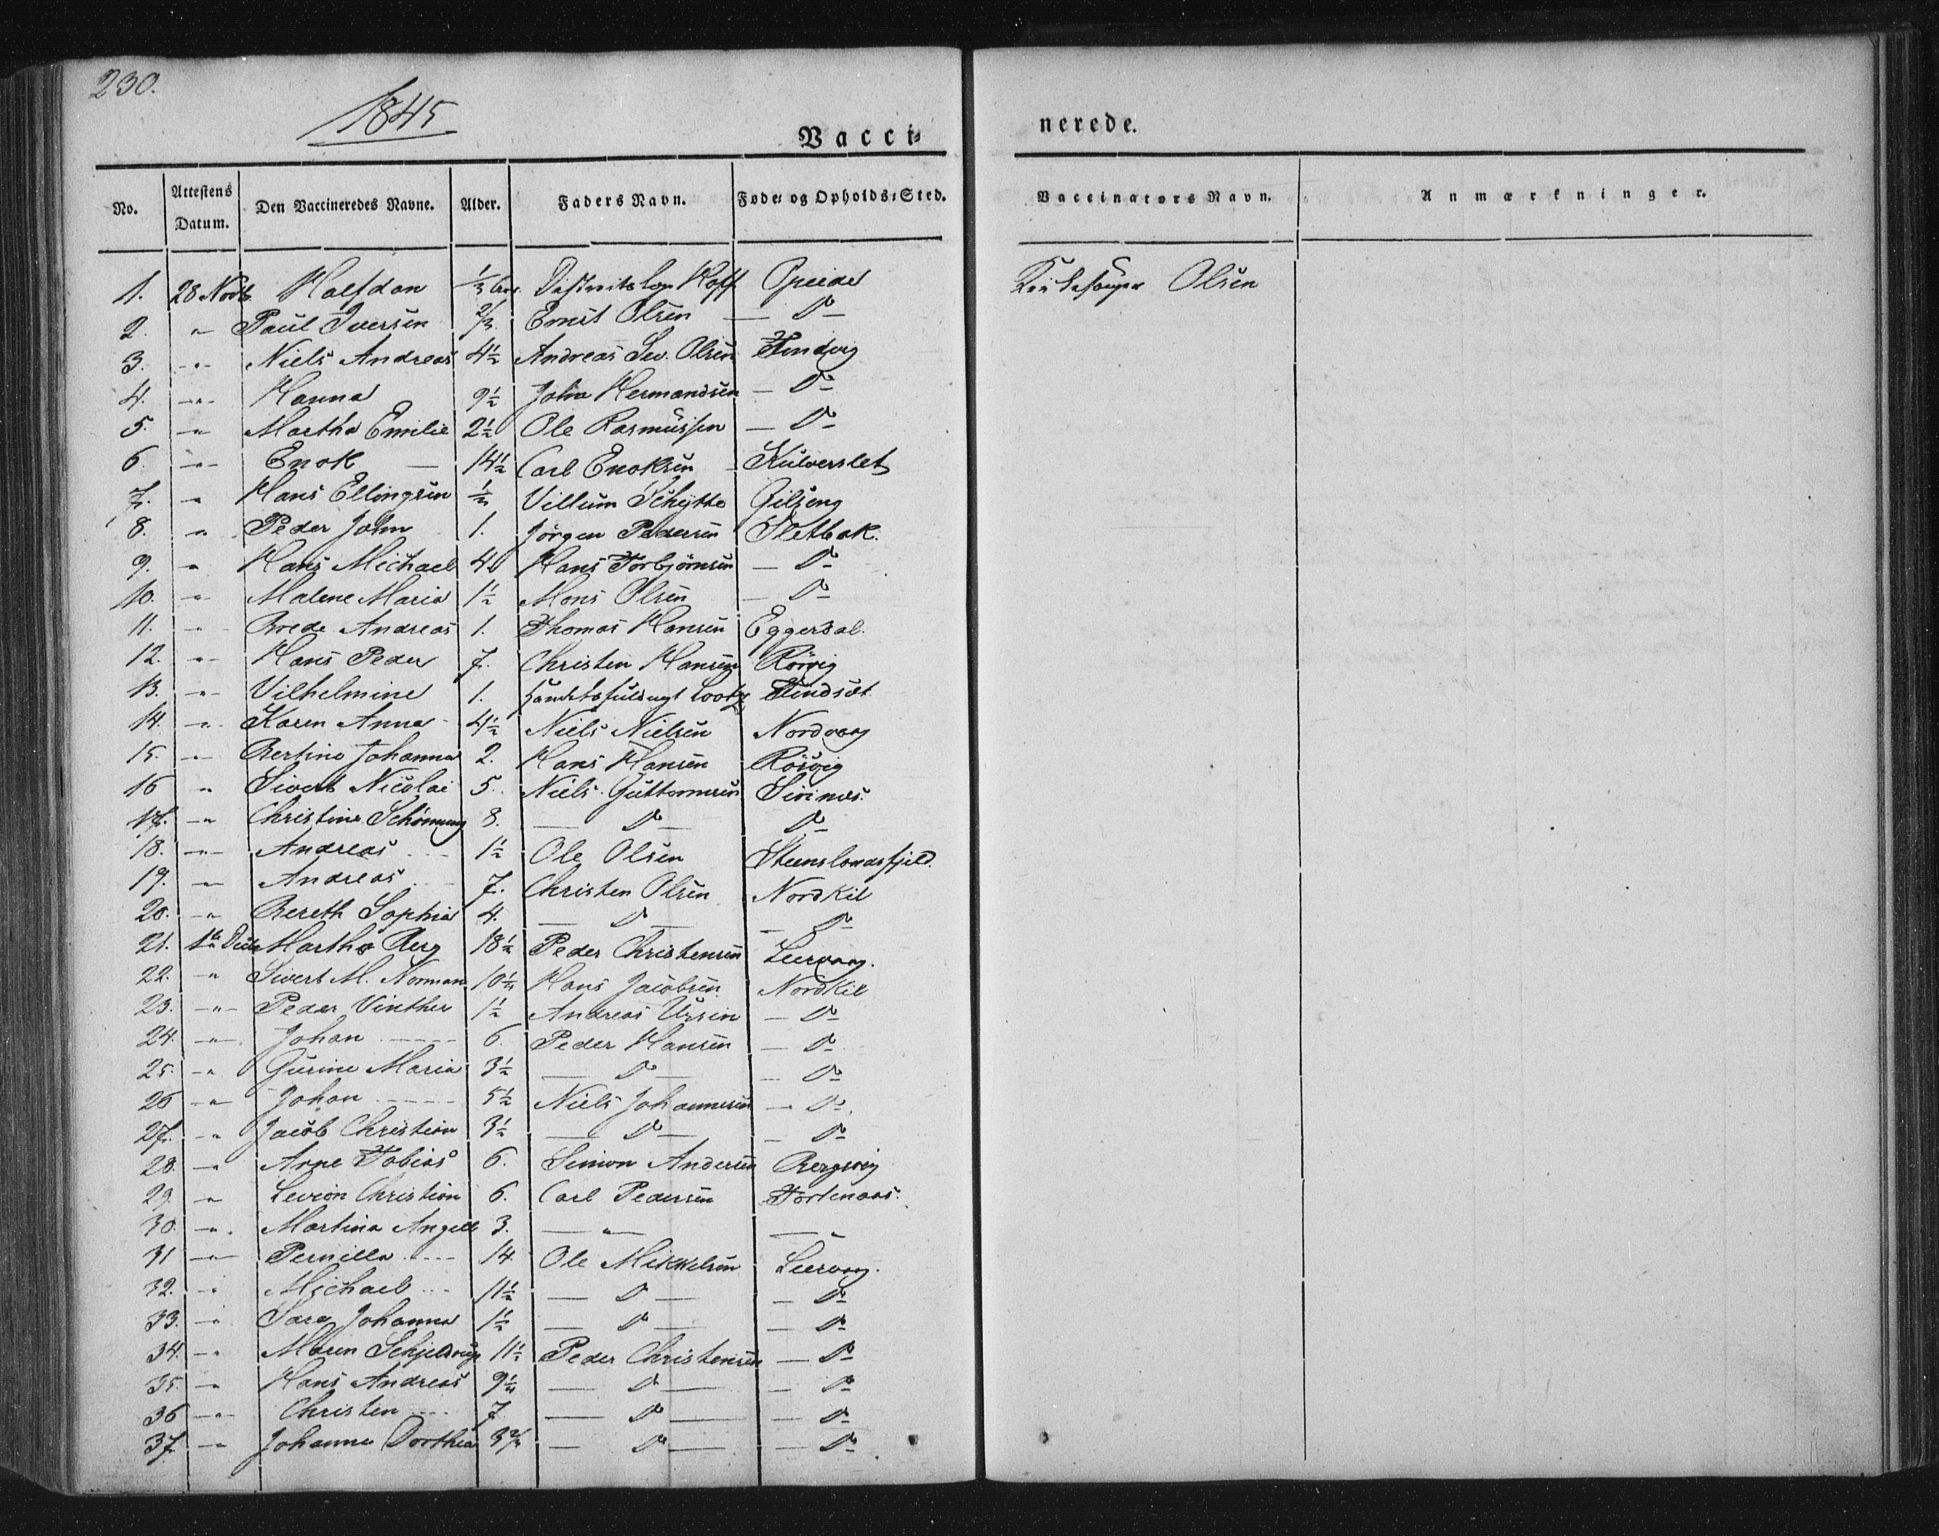 230.
1845
Vacci-
nerede.
No. Attestens Datum. Den Vaccineredes Navne. Alder. Faders Navn. Føde- og Opholds-Sted. Vaccinators Navn. Anmærkninger.
1. 28 Novbr. Halfdan 1/3 Aar. Hoff Opeide Kirkesanger Olsen
2. " Paul Iversen 2/3. Ernst Olsen — Do —
3. " Niels Andreas 4½ Andreas Sev. Olsen Findvig
4. " Hanna 9½ John Hermandsen — Do
5. " Martha Emilie 2½ Ole Rasmussen — Do
6. " Enok 14½ Carl Enoksen Kulverslet
7. " Hans Ellingsen ½ Villum Schytte Gilseng
8. " Peder John 1. Jørgen Pedersen Sletbak.
9. " Hans Michael 4 Hans Torbjørnsen — Do
10. " Malene Maria 1½ Mons Olsen — Do
11. " Brede Andreas 1. Thomas Hansen Eggerdal.
12. " Hans Peder 7. Christen Hansen Røsvig
13. " Vilhelmine 1. Handelsfuldmgt Lootz Findset
14. " Karen Anna 4½ Niels Nielsen Nordvaag
15. " Bertine Johanna 2. Hans Hansen Røsvig
16 " Sivert Nicolai 5. Niels Guttormsen Sirines.
17. " Christine Schønning 8. — Do — Do
18. " Andreas 1½ Ole Olsen Steenslandsfjeld.
19. " Andreas 7. Christen Olsen Nordkil
20. " Bereth Sophia 4. — Do — — Do
21. 1te Decbr Martha Berg 18½ Peder Christensen Leervaag.
22. " Sivert M. Norman 10¼ Hans Jacobsen Nordkil
23. " Peder Vinther 1½ Andreas Ursin — Do
24. " Johan 6. Peder Hansen — Do
25. " Gurine Maria 3½ — Do — — Do
26 " Johan 5½ Niels Johannesen — Do.
27. " Jacob Christian 3½ — Do — — Do
28. " Arne Tobias 6. Simon Andersen Bergsvig
29. " Levion Christian 6. Carl Pedersen Tortenaas.
30. " Martina Angell 3. — " — — " —
31 " Pernilla 14. Ole Mikkelsen Leervaag.
32. " Michael 11½ — Do — — Do
33. " Sara Johanna 1½ — Do — — Do
34. " Maren Schjeldrup 11½ Peder Christensen — Do
35. " Hans Andreas 9¼ — Do — — Do
36 " Christen 7 — Do — — Do
37. " Johanna Dorthea 3⅔ — Do — — Do